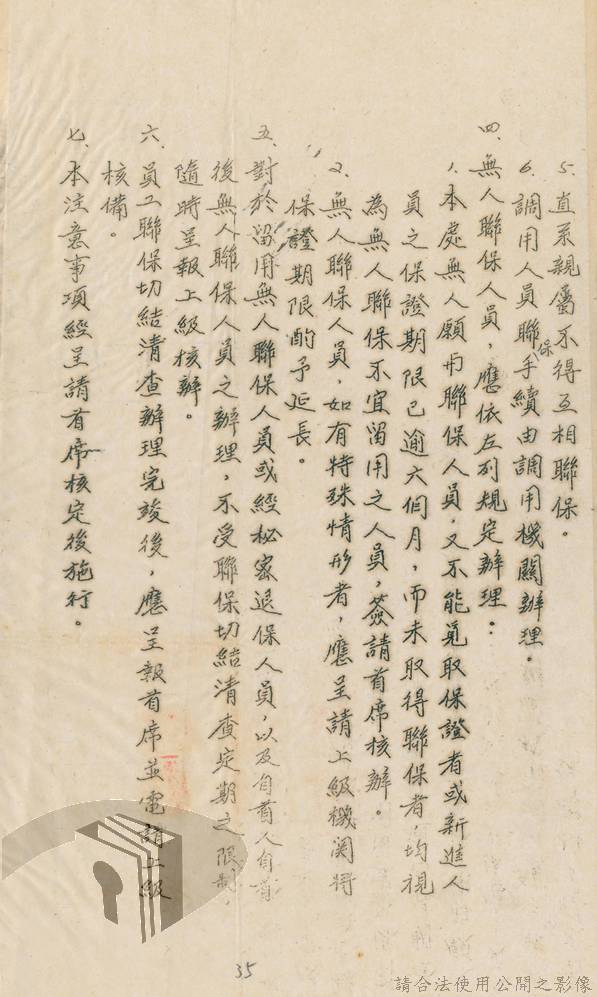 5.直系親屬不得互相聯保。
6.調用人員聯保手續由調用機關辦理。
四、無人聯保人員，應依左列規定辦理：
1.本處無人願與聯保人員，又不能覓取保證者或新進人
員之保證期限已逾六個月，而未取得聯保者，均視
為無人聯保不宜留用之人員，簽請首席核辦。
2.無人聯保人員，如有特殊情形者，應呈請上級機関將
保證期限酌予延長。
五、對於留用無人聯保人員或經秘密退保人員，以及自首人自首
後無人聯保人員之辦理，不受聯保切結清查定期之限制，
隨時呈報上級核辦。
六、員工聯保切結清查辦理完竣後，應呈報首席並電請上級
核備。
七、本注意事項經呈請首席核定後施行。
35
請合法使用公開之影像